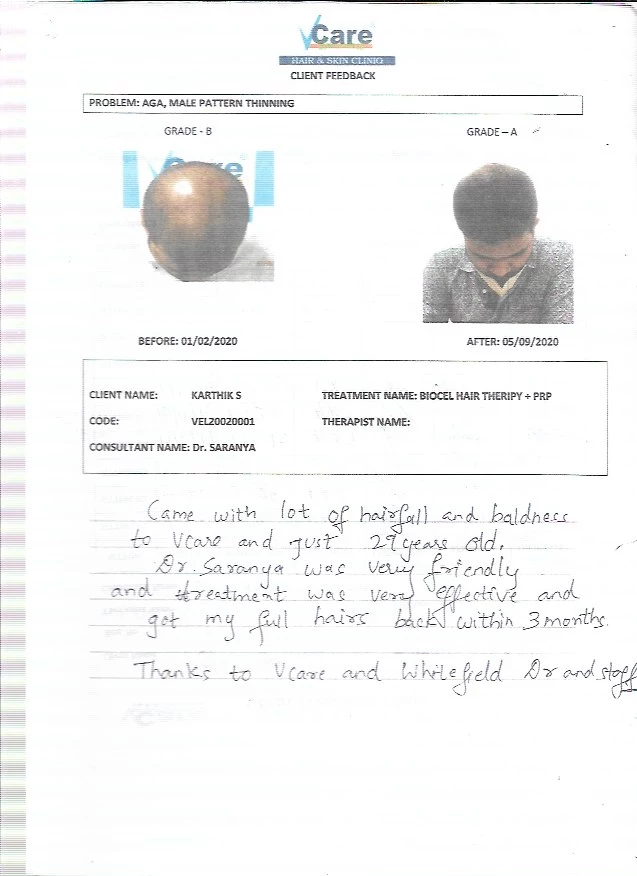 VCare
HAIR & SKIN CLINIC
CLIENT FEEDBACK
PROBLEM: AGA, MALE PATTERN THINNING
GRADE - B
GRADE – A
Care
BEFORE: 01/02/2020
AFTER: 05/09/2020
CLIENT NAME: KARTHIK S
TREATMENT NAME: BIOCEL HAIR THERIPY + PRP
CODE: VEL20020001
THERAPIST NAME:
CONSULTANT NAME: Dr. SARANYA
Came with lot of hairfall and baldness
to Vcare and just 27 years old.
Dr. Saranya was very friendly
and treatment was very effective and
got my full hairs back within 3 months.
Thanks to Vcare and Whitefield Dr and staff